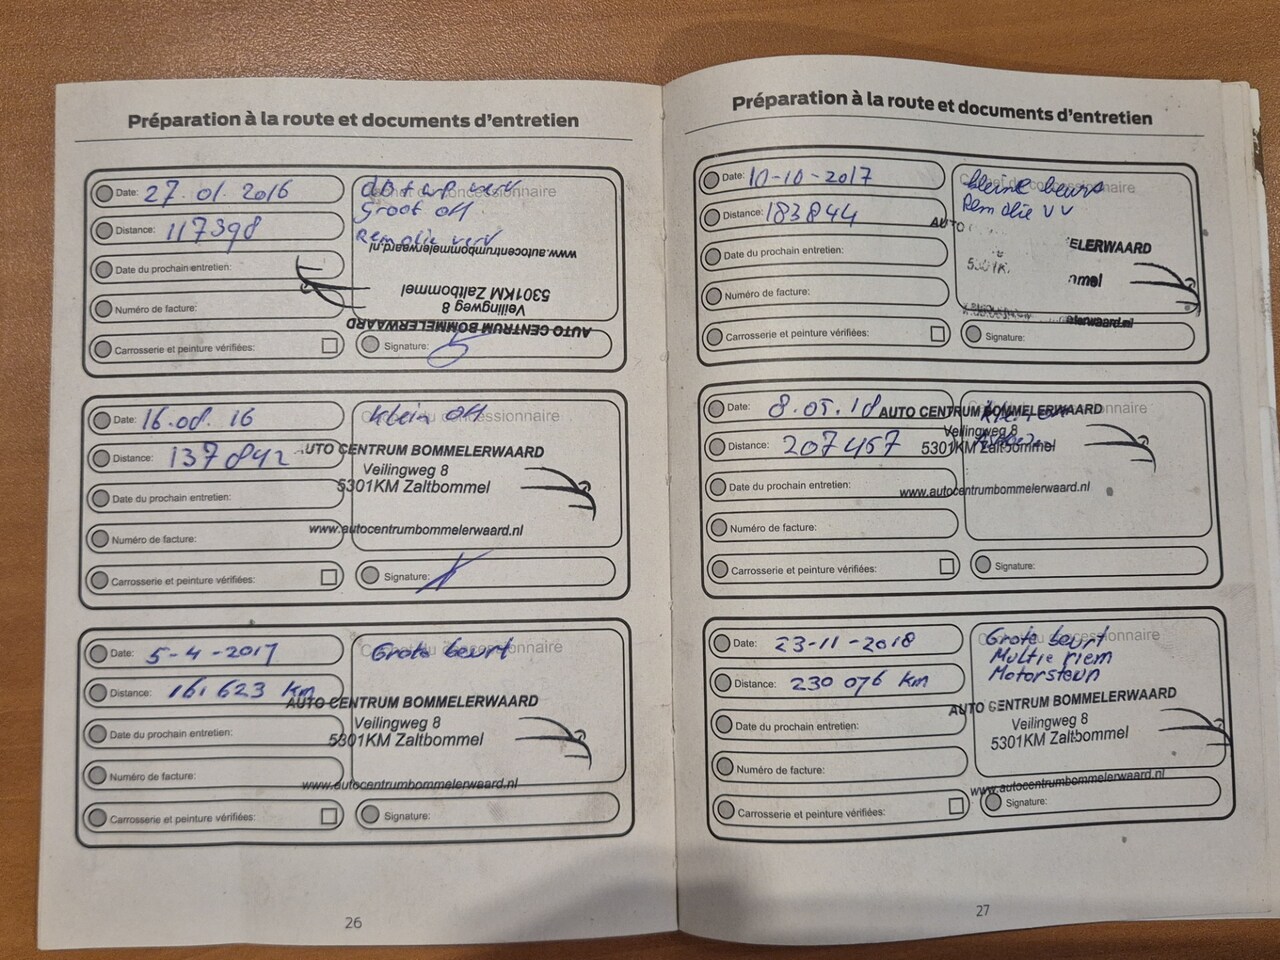 Préparation à la route et documents d'entretien
Date: 27.01.2016
Distance: 117398
Date du prochain entretien:
Numéro de facture:
Carrosserie et peinture vérifiées:
Cachet du concessionnaire
verv
Groot OH
Remolie verv
www.autocentrumbommelerwaard.nl
5301KM Zaltbommel
Veilingweg 8
AUTO CENTRUM BOMMELERWAARD
Signature:
Date: 16.08.16
Distance: 137842
Date du prochain entretien:
Numéro de facture:
Carrosserie et peinture vérifiées:
Cachet du concessionnaire
Klein OH
AUTO CENTRUM BOMMELERWAARD
Veilingweg 8
5301KM Zaltbommel
www.autocentrumbommelerwaard.nl
Signature:
Date: 5-4-2017
Distance: 161623 km
Date du prochain entretien:
Numéro de facture:
Carrosserie et peinture vérifiées:
Cachet du concessionnaire
Grote beurt
AUTO CENTRUM BOMMELERWAARD
Veilingweg 8
5301KM Zaltbommel
www.autocentrumbommelerwaard.nl
Signature:
26
Préparation à la route et documents d'entretien
Date: 10-10-2017
Distance: 183844
Date du prochain entretien:
Numéro de facture:
Carrosserie et peinture vérifiées:
Cachet du concessionnaire
kleine beurt
Rem olie VV
AUTO ELERWAARD
mmel
elerwaard.nl
Signature:
Date: 8.05.18
Distance: 207457
Date du prochain entretien:
Numéro de facture:
Carrosserie et peinture vérifiées:
AUTO CENTRUM BOMMELERWAARD
Veilingweg 8
5301KM Zaltbommel
www.autocentrumbommelerwaard.nl
Signature:
Date: 23-11-2018
Distance: 230076 km
Date du prochain entretien:
Numéro de facture:
Carrosserie et peinture vérifiées:
Cachet du concessionnaire
Grote beurt
Multie riem
Motorsteun
AUTO CENTRUM BOMMELERWAARD
Veilingweg 8
5301KM Zaltbommel
www.autocentrumbommelerwaard.nl
Signature:
27